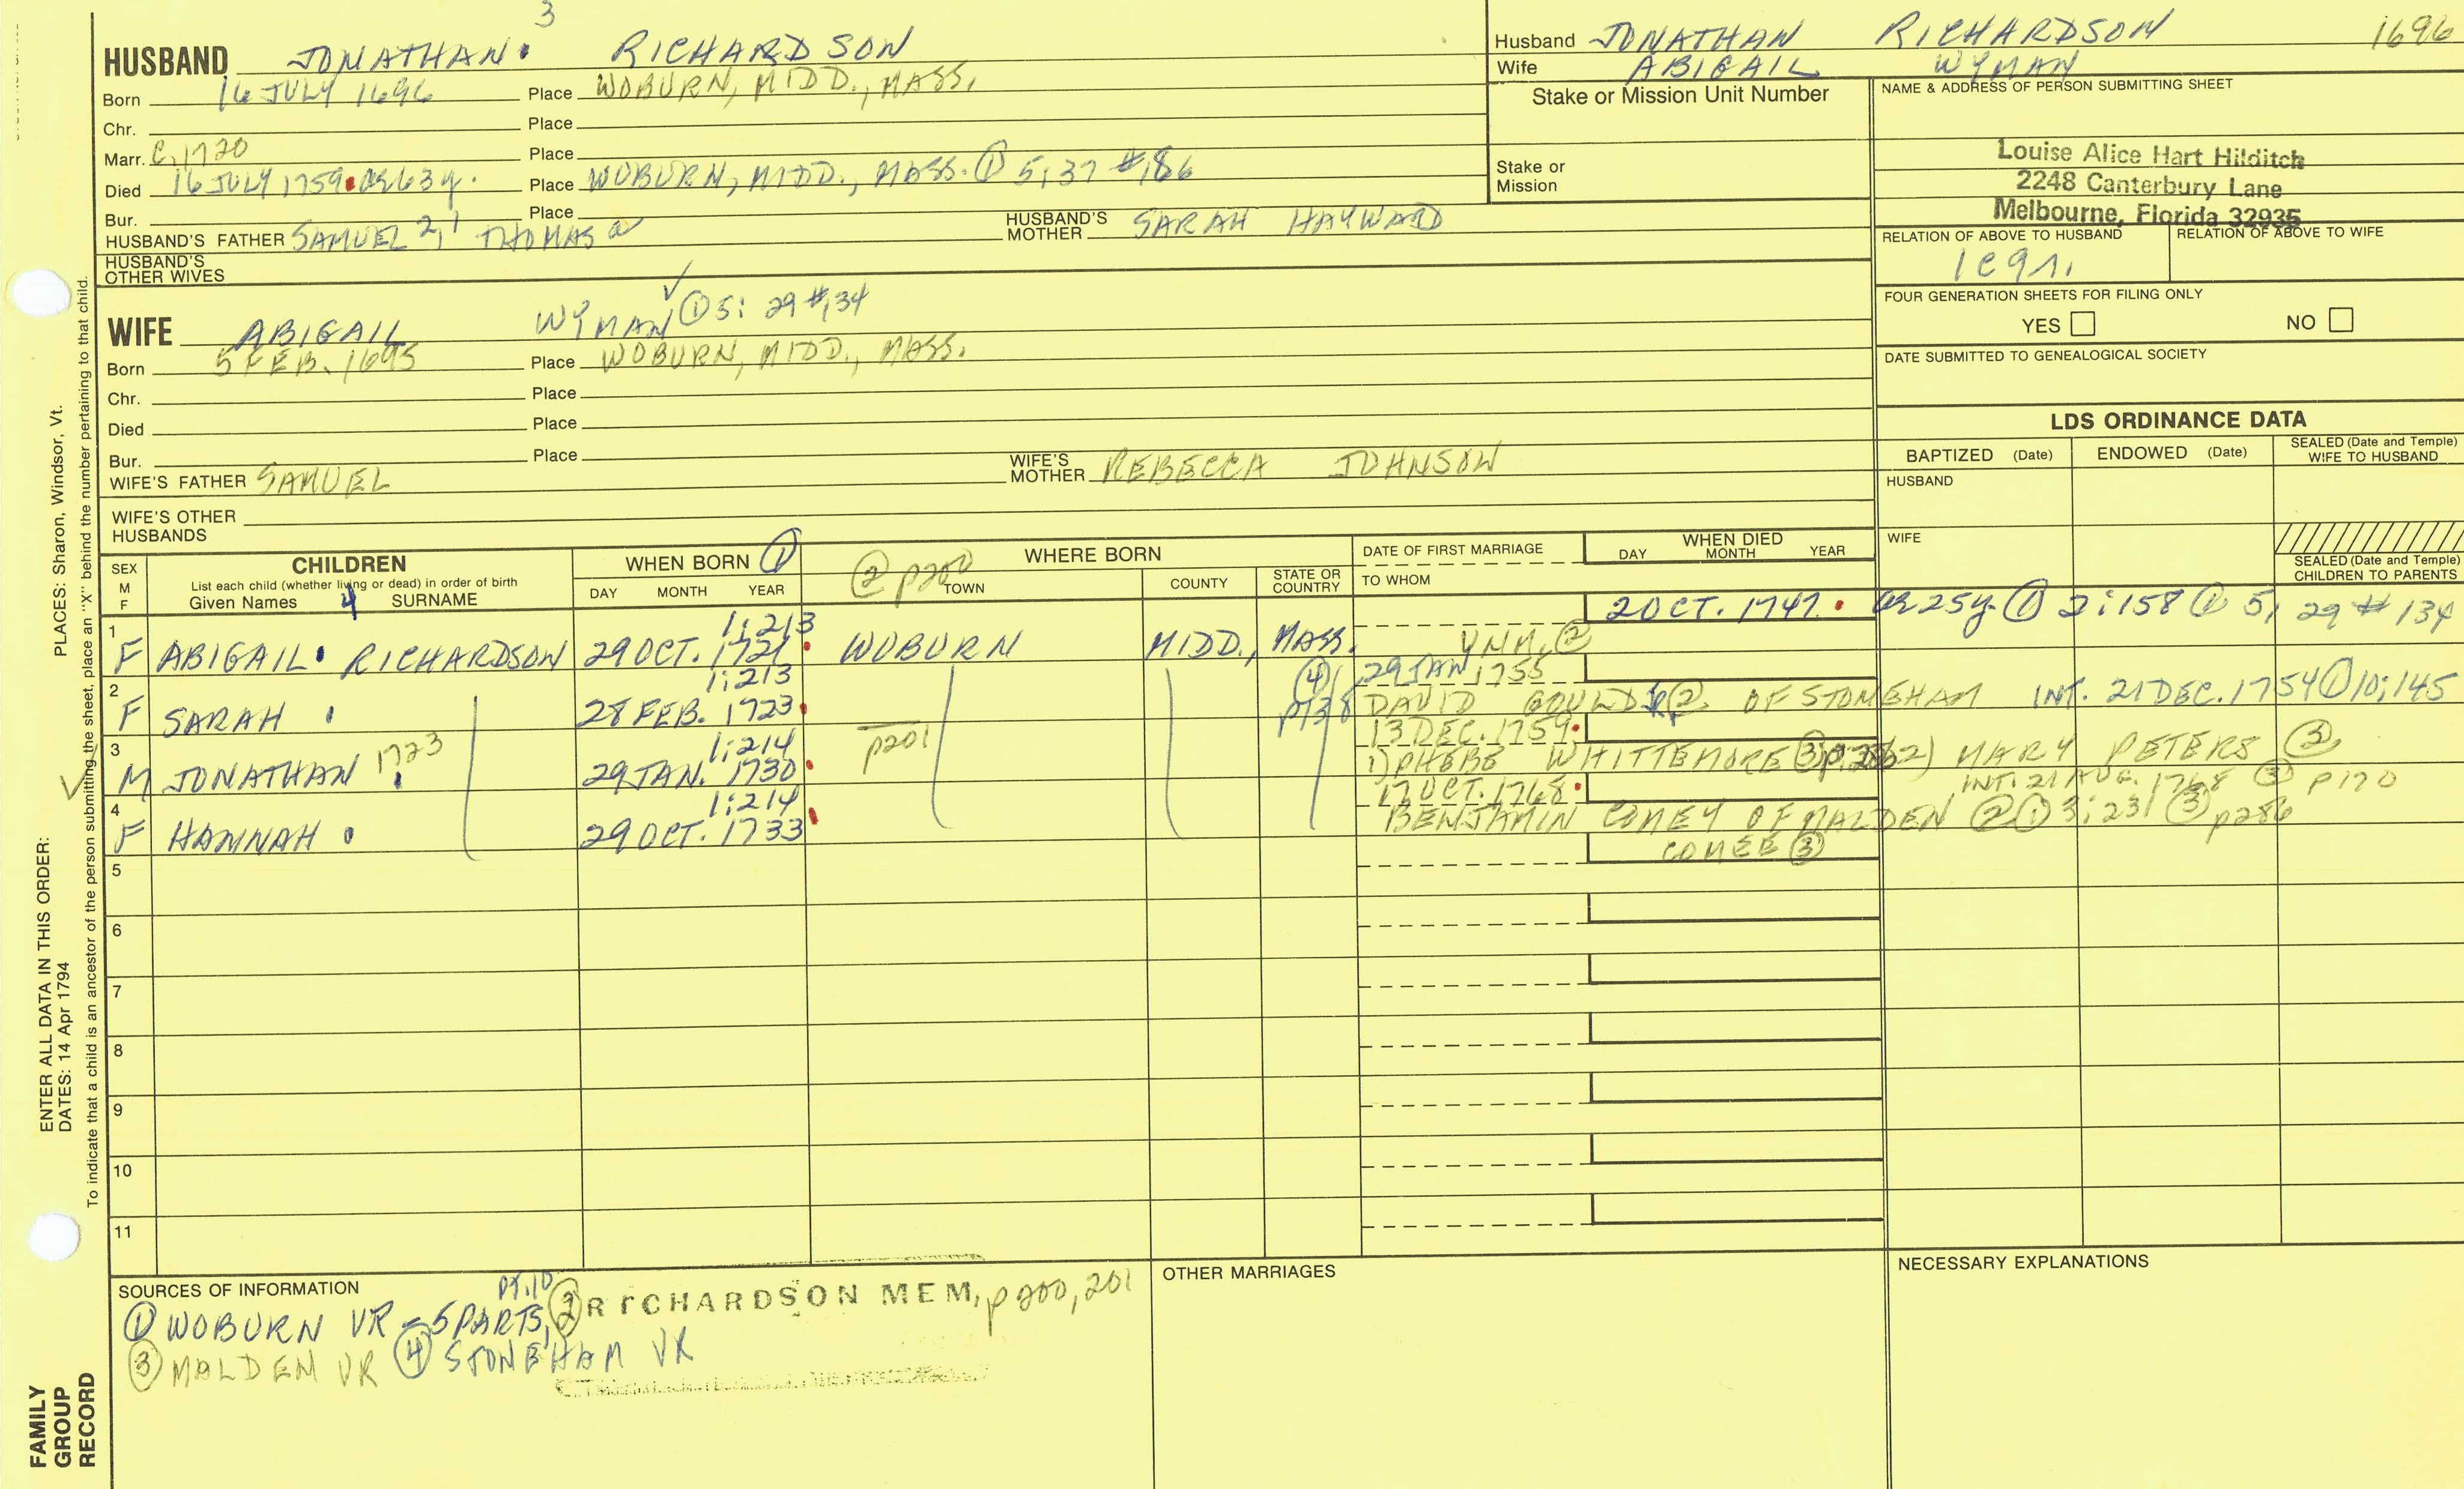 3
HUSBAND JONATHAN RICHARDSON
Born 16 JULY 1696 Place WOBURN, MIDD., MASS.
Chr. Place
Marr. C. 1720 Place
Died 16 JULY 1759 ae 63y. Place WOBURN, MIDD., MASS. ① 5; 37 #186
Bur. Place
HUSBAND'S FATHER SAMUEL 2, 1 THOMAS HUSBAND'S MOTHER SARAH HAYWARD
HUSBAND'S OTHER WIVES
Husband JONATHAN RICHARDSON 1696
Wife ABIGAIL WYMAN
Stake or Mission Unit Number
Stake or Mission
NAME & ADDRESS OF PERSON SUBMITTING SHEET
Louise Alice Hart Hilditch
2248 Canterbury Lane
Melbourne, Florida 32935
RELATION OF ABOVE TO HUSBAND RELATION OF ABOVE TO WIFE
FOUR GENERATION SHEETS FOR FILING ONLY
YES NO
DATE SUBMITTED TO GENEALOGICAL SOCIETY
WIFE ABIGAIL WYMAN ① 5: 29 #134
Born 5 FEB. 1695 Place WOBURN, MIDD., MASS.
Chr. Place
Died Place
Bur. Place
WIFE'S FATHER SAMUEL WIFE'S MOTHER REBECCA JOHNSON
WIFE'S OTHER HUSBANDS
LDS ORDINANCE DATA
BAPTIZED (Date) ENDOWED (Date) SEALED (Date and Temple) WIFE TO HUSBAND
HUSBAND
WIFE
SEALED (Date and Temple) CHILDREN TO PARENTS
SEX M F
CHILDREN
List each child (whether living or dead) in order of birth
Given Names 4 SURNAME
WHEN BORN ①
DAY MONTH YEAR
② p200 WHERE BORN
TOWN COUNTY STATE OR COUNTRY
DATE OF FIRST MARRIAGE
TO WHOM
WHEN DIED
DAY MONTH YEAR
2 OCT. 1747. ae 25y. ① 2:158 ① 5, 29 # 134
1 1:213
F ABIGAIL RICHARDSON 29 OCT. 1721 WOBURN MIDD., MASS. UNM. ②
2 1:213 ④ p138 29 JAN 1755
F SARAH 28 FEB. 1723 DAVID GOULD ② OF STONEHAM INT. 21 DEC. 1754 ① 10; 145
3 1723 1:214 p201 13 DEC. 1759
M JONATHAN 29 JAN. 1730 1) PHEBE WHITTEMORE ③ 2) MARY PETERS ③
INT. 21 AUG. 1768 ③ p170
4 1:214 17 OCT. 1768
F HANNAH 29 OCT. 1733 BENJAMIN COMEY OF MALDEN ② ① 3:231 ③ p286
COMEE ③
5
6
7
8
9
10
11
SOURCES OF INFORMATION
PT.10
① WOBURN VR - 5 PARTS, ② RICHARDSON MEM, p200, 201
③ MALDEN VR ④ STONEHAM VR
OTHER MARRIAGES
NECESSARY EXPLANATIONS
ENTER ALL DATA IN THIS ORDER:
DATES: 14 Apr 1794
PLACES: Sharon, Windsor, Vt.
To indicate that a child is an ancestor of the person submitting the sheet, place an "X" behind the number pertaining to that child.
FAMILY
GROUP
RECORD